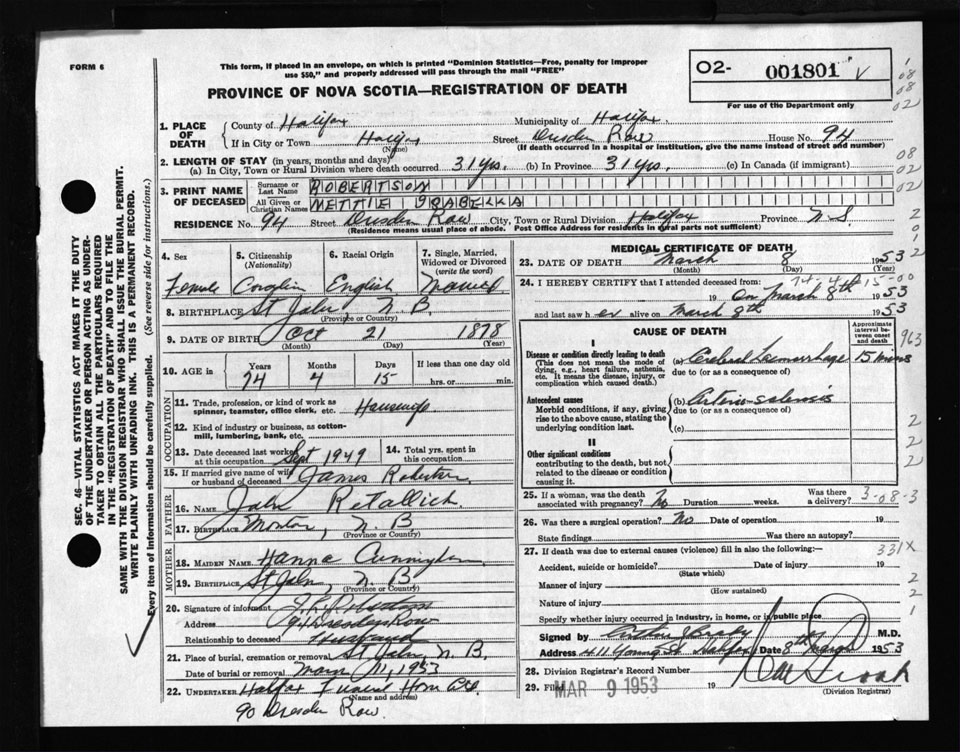 FORM 6
This form, if placed in an envelope, on which is printed "Dominion Statistics—Free, penalty for improper
use $50," and properly addressed will pass through the mail "FREE"
O2- 001801 V
For use of the Department only
PROVINCE OF NOVA SCOTIA—REGISTRATION OF DEATH
1. PLACE OF DEATH
County of Halifax Municipality of Halifax
If in City or Town Halifax Street Dresden Row House No. 94
(Name) (If death occurred in a hospital or institution, give the name instead of street and number)
2. LENGTH OF STAY (in years, months and days)
(a) In City, Town or Rural Division where death occurred 31 yrs. (b) In Province 31 yrs. (c) In Canada (if immigrant)
3. PRINT NAME OF DECEASED
Surname or Last Name ROBERTSON
All Given or Christian Names METTIE ISABELLA
RESIDENCE No. 94 Street Dresden Row City, Town or Rural Division Halifax Province N.S.
(Residence means usual place of abode. Post Office Address for residents in rural parts not sufficient)
4. Sex Female
5. Citizenship (Nationality)
6. Racial Origin English
7. Single, Married, Widowed or Divorced (write the word) Married
8. BIRTHPLACE St John, N. B.
(Province or Country)
9. DATE OF BIRTH Oct 21 1878
(Month) (Day) (Year)
10. AGE in Years 74 Months 4 Days 15 If less than one day old hrs. or min.
OCCUPATION
11. Trade, profession or kind of work as spinner, teamster, office clerk, etc. Housewife
12. Kind of industry or business, as cotton-mill, lumbering, bank, etc.
13. Date deceased last worked at this occupation Sept 1949
14. Total yrs. spent in this occupation
15. If married give name of wife or husband of deceased James Robertson
FATHER
16. Name John Retallick
17. BIRTHPLACE N. B
(Province or Country)
MOTHER
18. MAIDEN NAME Hanna Cunningham
19. BIRTHPLACE St John N. B
(Province or Country)
20. Signature of informant Robertson
Address 94 Dresden Row
Relationship to deceased Husband
21. Place of burial, cremation or removal St John, N. B.
Date of burial or removal Mar 11, 1953
22. UNDERTAKER Halifax Funeral Home
(Name and address)
90 Dresden Row.
MEDICAL CERTIFICATE OF DEATH
23. DATE OF DEATH March 8 1953
(Month) (Day) (Year)
74-4-15-00
24. I HEREBY CERTIFY that I attended deceased from:
19 on March 8th 1953
and last saw her alive on March 8th 1953
CAUSE OF DEATH
Approximate interval between onset and death
I
Disease or condition directly leading to death
(This does not mean the mode of dying, e.g., heart failure, asthenia, etc. It means the disease, injury, or complication which caused death.)
(a) Cerebral haemorrhage 15 mins
due to (or as a consequence of)
Antecedent causes
Morbid conditions, if any, giving rise to the above cause, stating the underlying condition last.
(b)
due to (or as a consequence of)
(c)
II
Other significant conditions
contributing to the death, but not related to the disease or condition causing it.
25. If a woman, was the death associated with pregnancy? No Duration weeks. Was there a delivery?
3-08-3
26. Was there a surgical operation? No Date of operation 19
State findings Was there an autopsy?
27. If death was due to external causes (violence) fill in also the following:—
331X
Accident, suicide or homicide? Date of injury 19
(State which)
Manner of injury
(How sustained)
Nature of injury
Specify whether injury occurred in industry, in home, or in public place
Signed by M.D.
Address 411 Young St Halifax Date 8th March 1953
28. Division Registrar's Record Number
29. MAR 9 1953 19
(Division Registrar)
SEC. 46—VITAL STATISTICS ACT MAKES IT THE DUTY
OF THE UNDERTAKER OR PERSON ACTING AS UNDER-
TAKER TO OBTAIN ALL THE PARTICULARS REQUIRED
IN THE "REGISTRATION OF DEATH" AND TO FILE THE
SAME WITH THE DIVISION REGISTRAR WHO SHALL ISSUE THE BURIAL PERMIT.
WRITE PLAINLY WITH UNFADING INK. THIS IS A PERMANENT RECORD.
Every item of information should be carefully supplied. (See reverse side for instructions.)
1
08
08
02
08
02
02
2
0
1
2
963
2
2
2
2
2
1